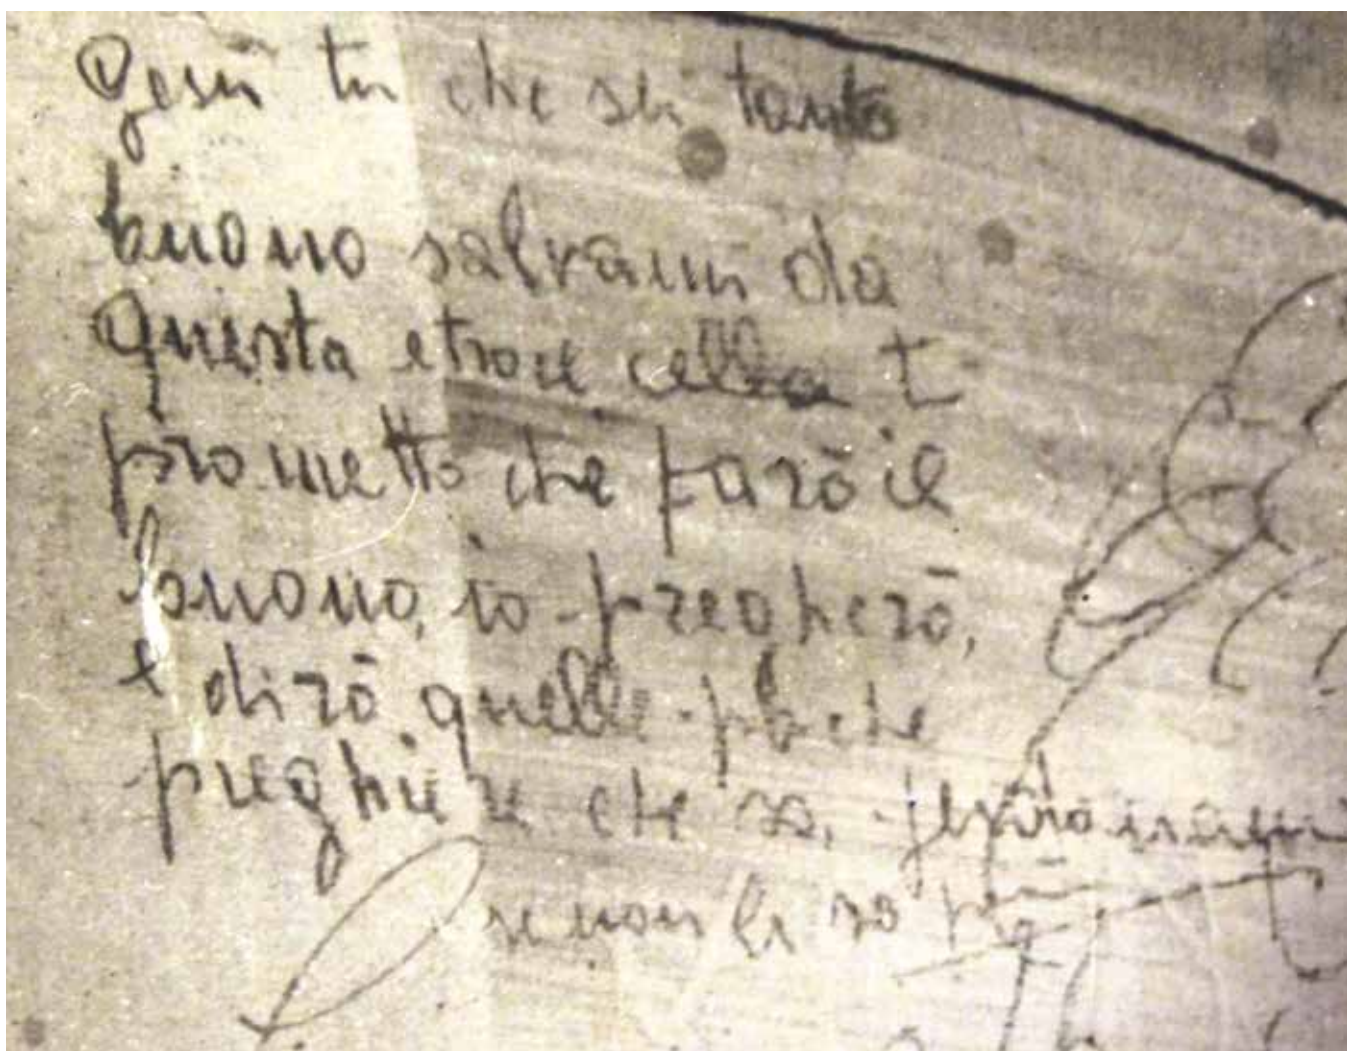 Gesù tu che sei tanto
buono salvami da
questa etroce cella t
prometto che farò il
buono, io pregherò,
e dirò quelle poche
preghiere che so,
se non le so più